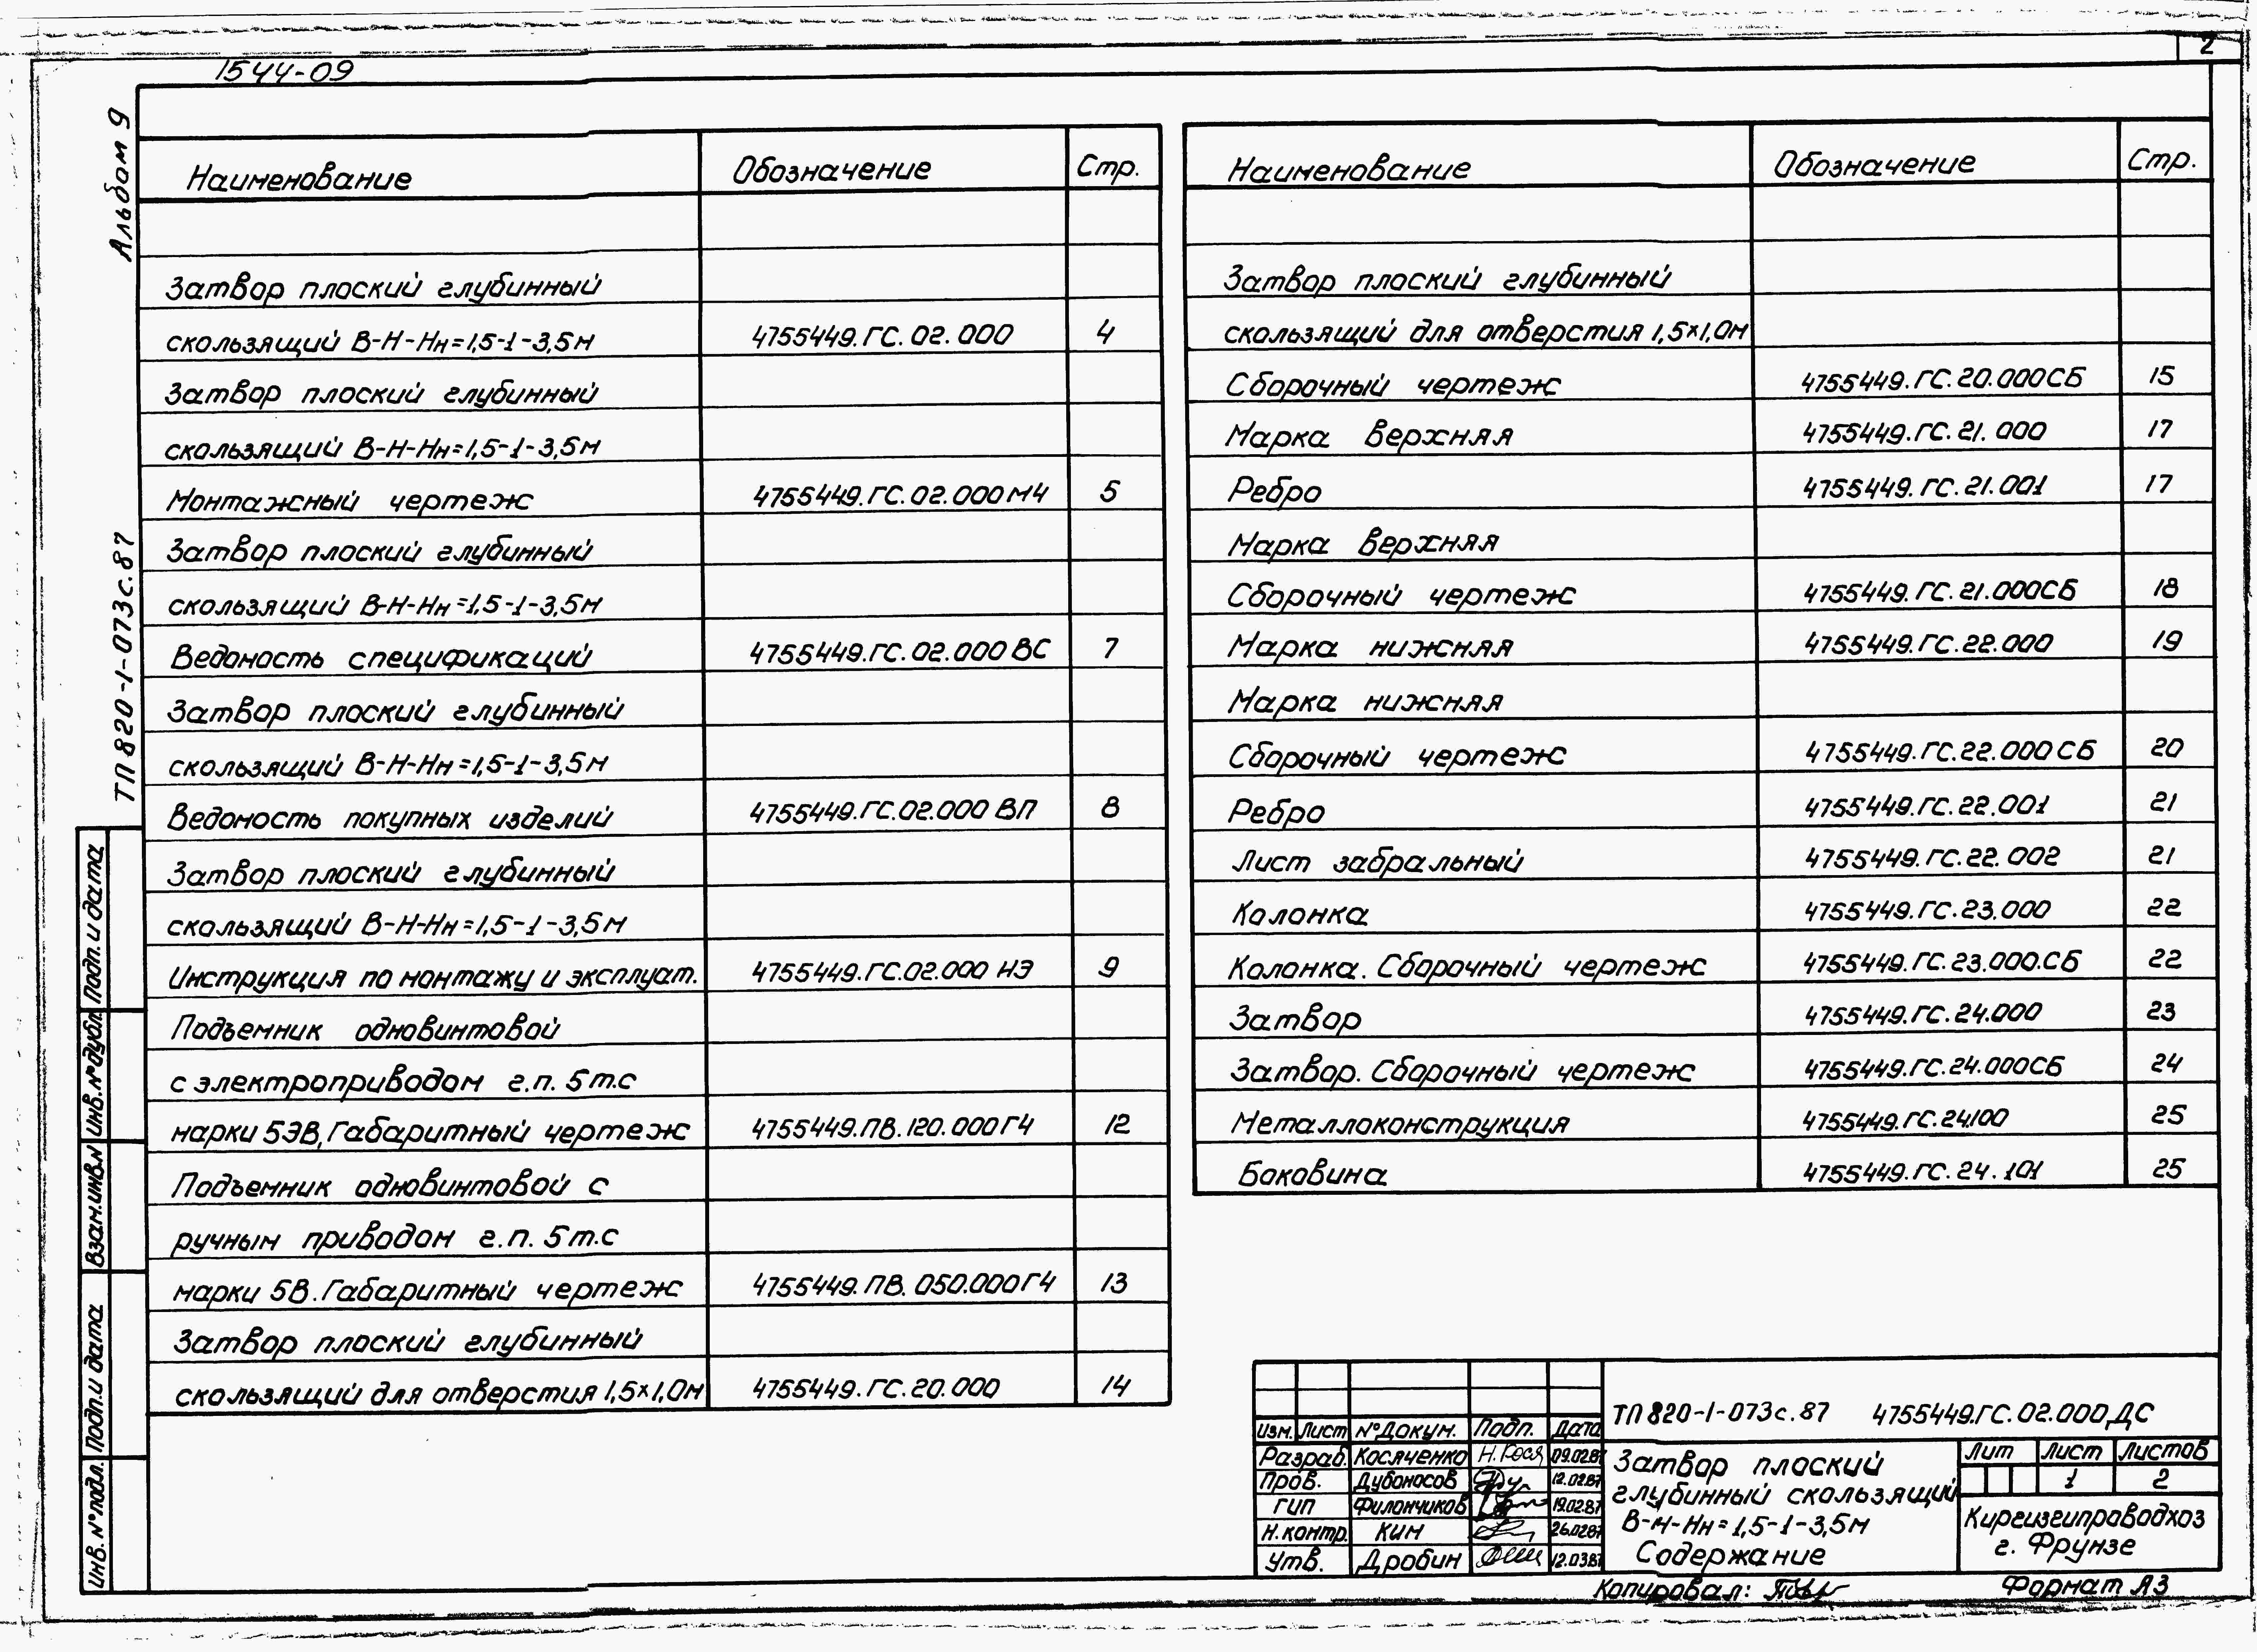 2
1544-09
Альбом 9
ТП 820-1-073с.87
Наименование Обозначение Стр.
Затвор плоский глубинный
скользящий В-Н-Нн=1,5-1-3,5м 4755449.ГС.02.000 4
Затвор плоский глубинный
скользящий В-Н-Нн=1,5-1-3,5м
Монтажный чертеж 4755449.ГС.02.000МЧ 5
Затвор плоский глубинный
скользящий В-Н-Нн=1,5-1-3,5м
Ведомость спецификаций 4755449.ГС.02.000 ВС 7
Затвор плоский глубинный
скользящий В-Н-Нн=1,5-1-3,5м
Ведомость покупных изделий 4755449.ГС.02.000 ВП 8
Затвор плоский глубинный
скользящий В-Н-Нн=1,5-1-3,5м
Инструкция по монтажу и эксплуат. 4755449.ГС.02.000 НЭ 9
Подъемник одновинтовой
с электроприводом г.п. 5т.с
марки 5ЭВ, Габаритный чертеж 4755449.ПВ.120.000ГЧ 12
Подъемник одновинтовой с
ручным приводом г.п. 5т.с
марки 5В. Габаритный чертеж 4755449.ПВ.050.000ГЧ 13
Затвор плоский глубинный
скользящий для отверстия 1,5×1,0м 4755449.ГС.20.000 14
Наименование Обозначение Стр.
Затвор плоский глубинный
скользящий для отверстия 1,5×1,0м
Сборочный чертеж 4755449.ГС.20.000СБ 15
Марка верхняя 4755449.ГС.21.000 17
Ребро 4755449.ГС.21.001 17
Марка верхняя
Сборочный чертеж 4755449.ГС.21.000СБ 18
Марка нижняя 4755449.ГС.22.000 19
Марка нижняя
Сборочный чертеж 4755449.ГС.22.000 СБ 20
Ребро 4755449.ГС.22.001 21
Лист забральный 4755449.ГС.22.002 21
Колонка 4755449.ГС.23.000 22
Колонка. Сборочный чертеж 4755449.ГС.23.000.СБ 22
Затвор 4755449.ГС.24.000 23
Затвор. Сборочный чертеж 4755449.ГС.24.000СБ 24
Металлоконструкция 4755449.ГС.24.100 25
Боковина 4755449.ГС.24.101 25
Подп. и дата
Инв. №дубл.
Взам.инв.№
Подп. и дата
Инв. №подл.
Изм. Лист №Докум. Подп. Дата
Разраб. Косяченко Н.Кося 09.02.87
Пров. Дубоносов 12.02.87
ГИП Филончиков 19.02.87
Н.контр. Ким 26.02.87
Утв. Дробин 12.03.87
ТП 820-1-073с.87 4755449.ГС.02.000ДС
Затвор плоский
глубинный скользящий
В-Н-Нн=1,5-1-3,5м
Содержание
Лит Лист Листов
1 2
Киргизгипроводхоз
г. Фрунзе
Копировал:
Формат А3